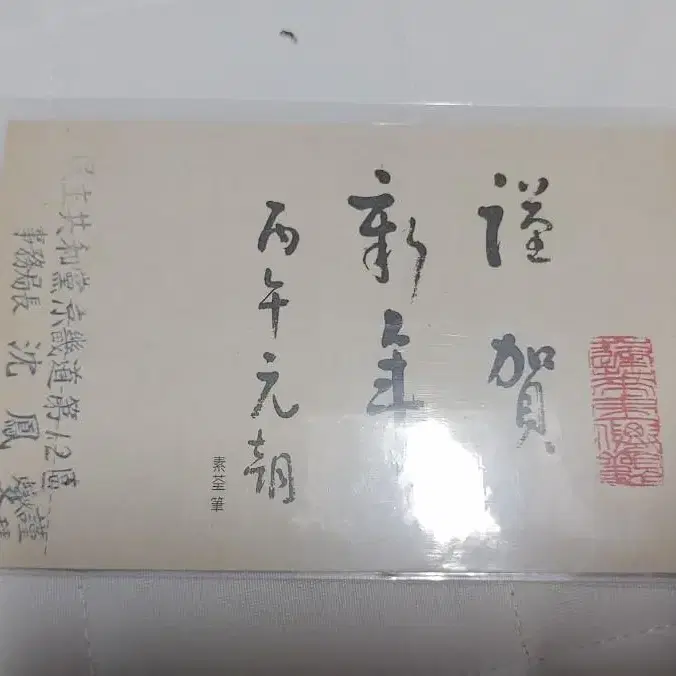 謹賀
新年
丙午元朝
素荃筆
民主共和黨京畿道第12區
事務局長 沈鳳